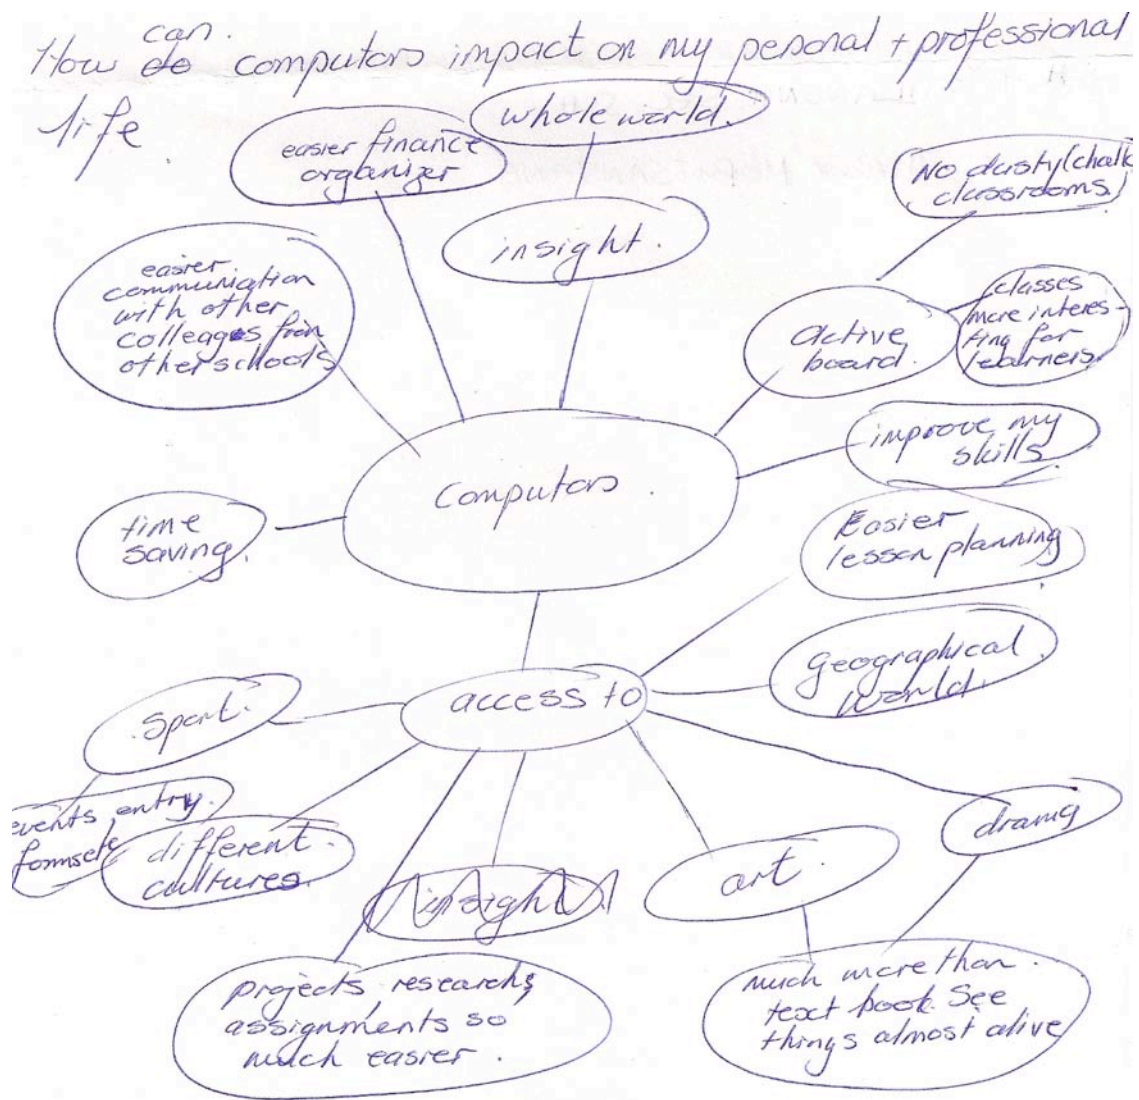 can.
How do computors impact on my pesonal + professional
life.
whole world.
easier finance
organizer
insight.
No dusty (chalk)
classrooms
easier
communication
with other
colleages from
other schools
active
board.
classes
more interes-
ting for
learners.
improve my
skills
computors.
time
saving.
Easier
lesson planning
Geographical
world.
access to
sport.
events entry.
forms etc
different.
cultures.
insight
art.
drama
projects, research,
assignments so
much easier.
much more than.
text book. See
things almost alive